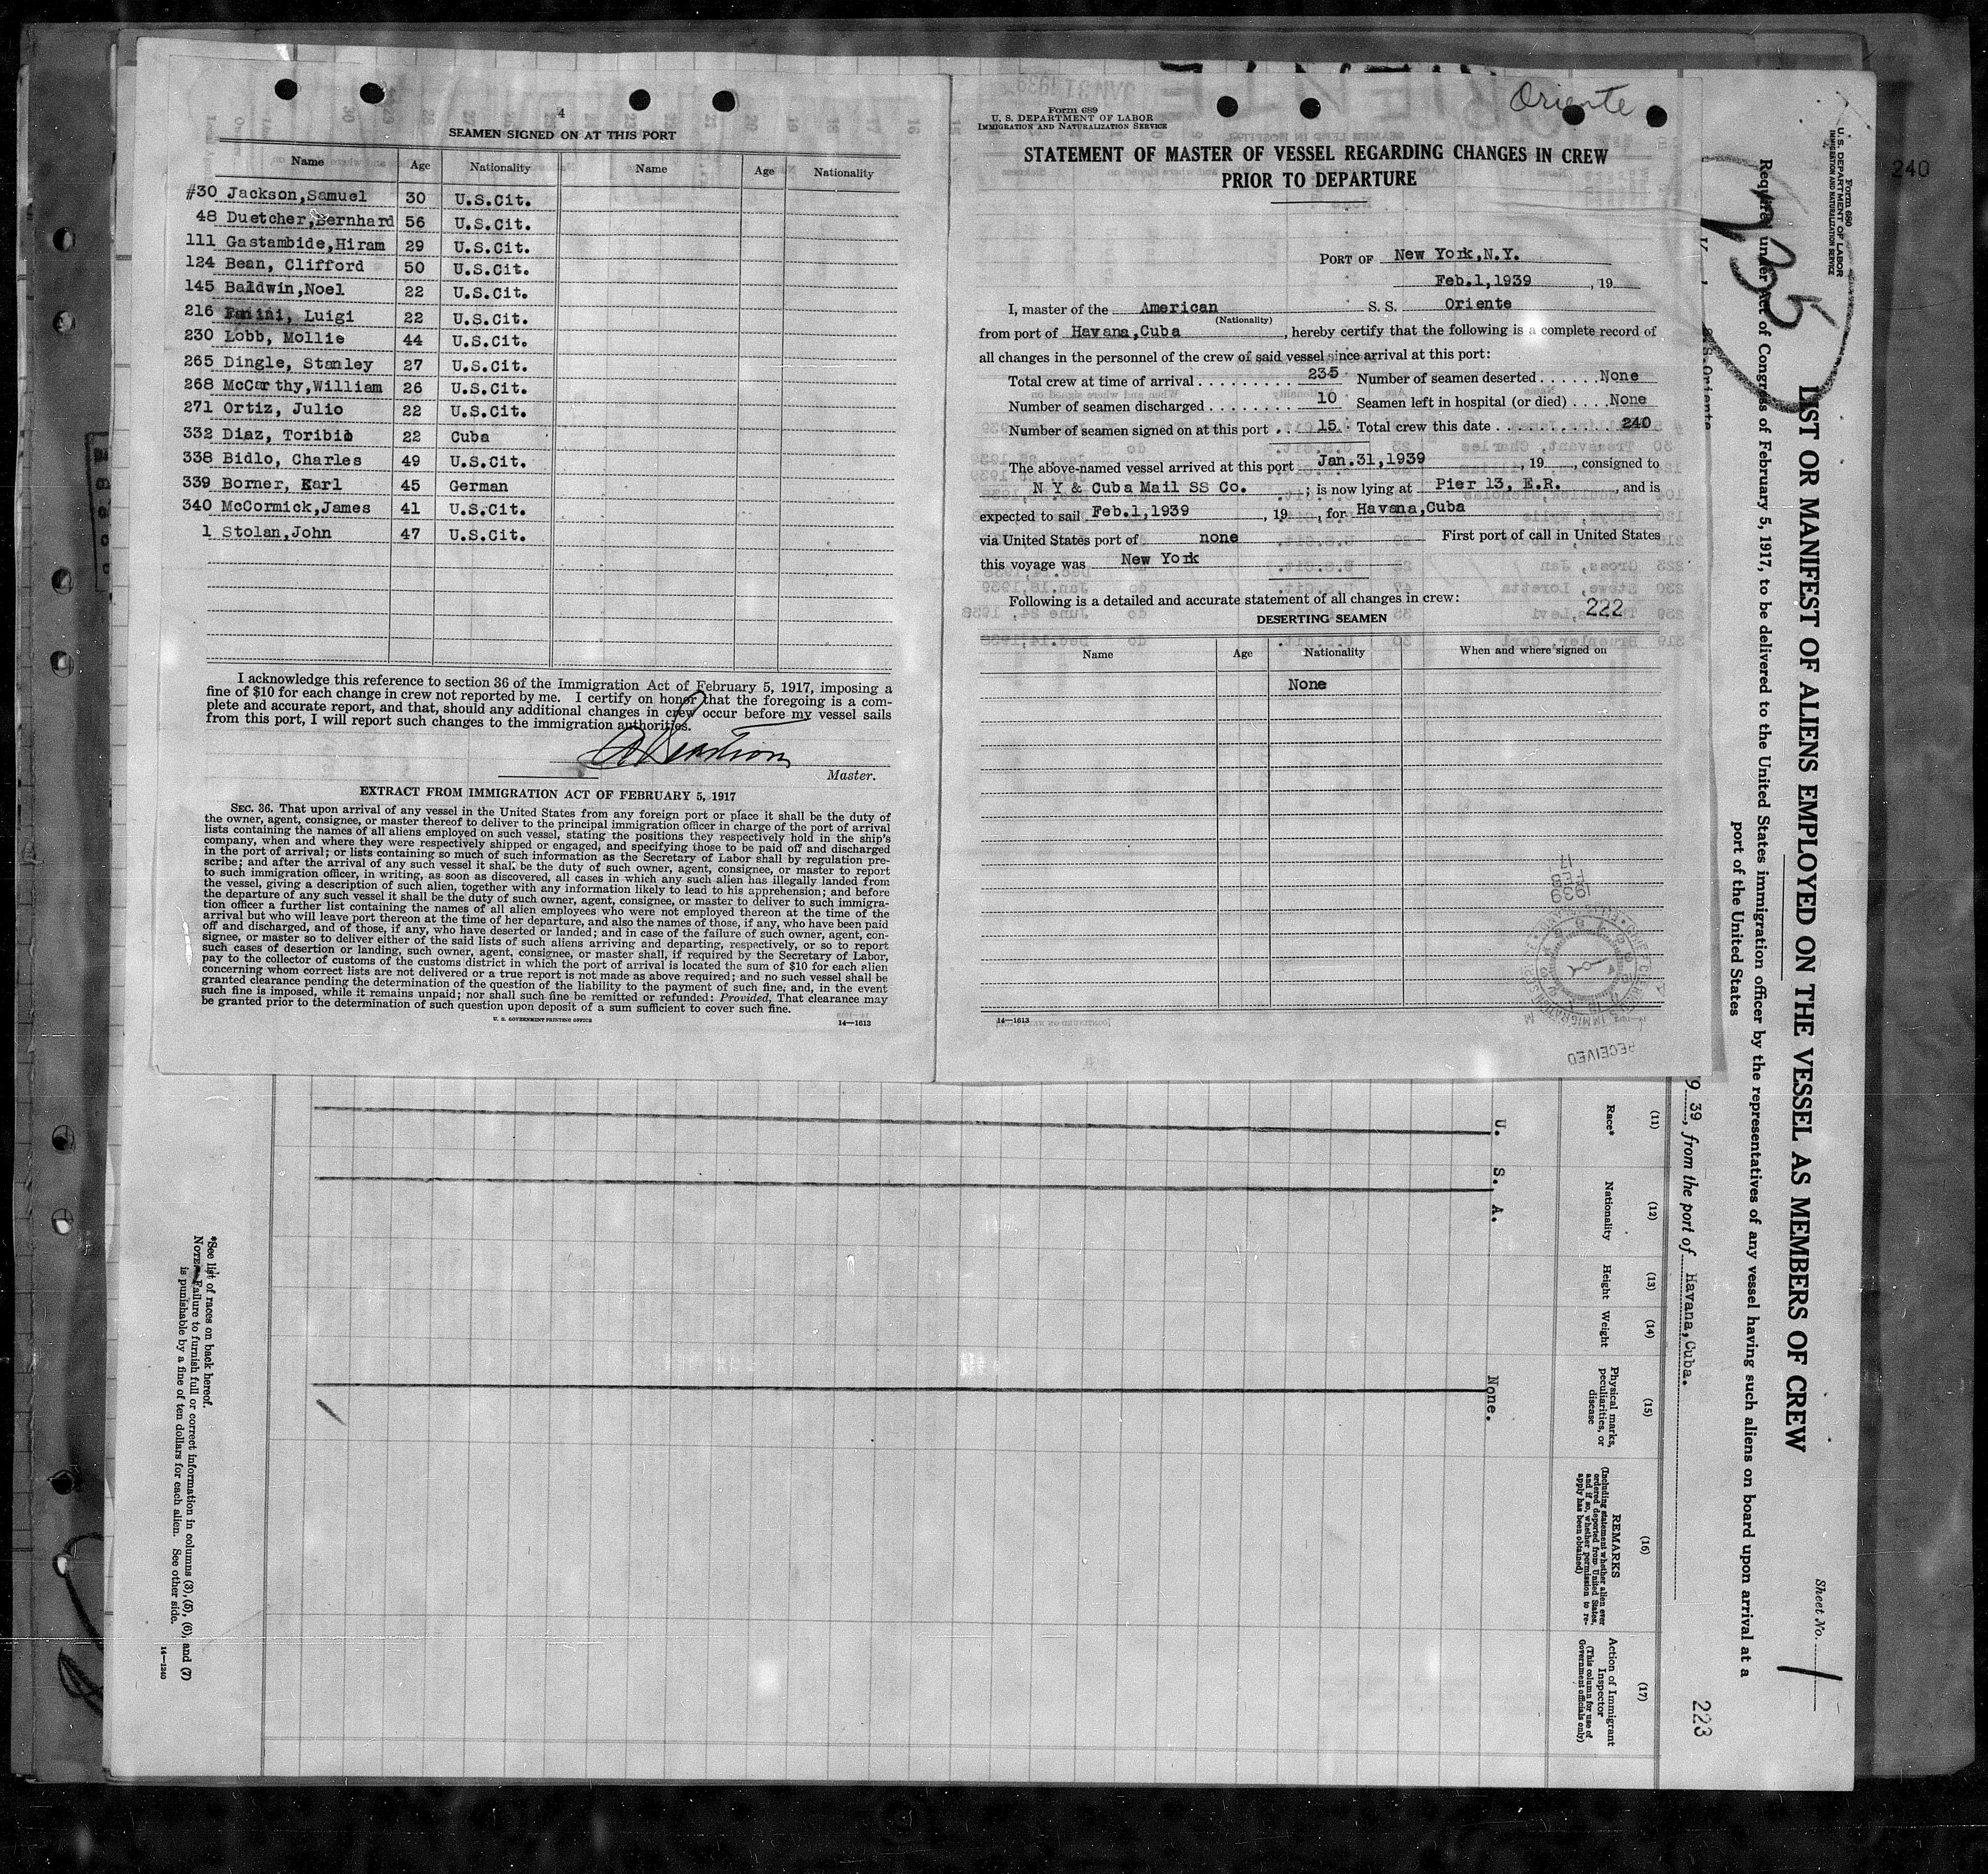 4
SEAMEN SIGNED ON AT THIS PORT
Name Age Nationality Name Age Nationality
#30 Jackson,Samuel 30 U.S.Cit.
48 Duetcher,Bernhard 56 U.S.Cit.
111 Gastambide,Hiram 29 U.S.Cit.
124 Bean, Clifford 50 U.S.Cit.
145 Baldwin,Noel 22 U.S.Cit.
216 Luigi 22 U.S.Cit.
230 Lobb, Mollie 44 U.S.Cit.
265 Dingle, Stanley 27 U.S.Cit.
268 McCarthy,William 26 U.S.Cit.
271 Ortiz, Julio 22 U.S.Cit.
332 Diaz, Toribio 22 Cuba
338 Bidlo, Charles 49 U.S.Cit.
339 Borner, Karl 45 German
340 McCormick,James 41 U.S.Cit.
1 Stolan,John 47 U.S.Cit.
I acknowledge this reference to section 36 of the Immigration Act of February 5, 1917, imposing a
fine of $10 for each change in crew not reported by me. I certify on honor that the foregoing is a com-
plete and accurate report, and that, should any additional changes in crew occur before my vessel sails
from this port, I will report such changes to the immigration authorities.
Master.
EXTRACT FROM IMMIGRATION ACT OF FEBRUARY 5, 1917
SEC. 36. That upon arrival of any vessel in the United States from any foreign port or place it shall be the duty of
the owner, agent, consignee, or master thereof to deliver to the principal immigration officer in charge of the port of arrival
lists containing the names of all aliens employed on such vessel, stating the positions they respectively hold in the ship's
company, when and where they were respectively shipped or engaged, and specifying those to be paid off and discharged
in the port of arrival; or lists containing so much of such information as the Secretary of Labor shall by regulation pre-
scribe; and after the arrival of any such vessel it shall be the duty of such owner, agent, consignee, or master to report
to such immigration officer, in writing, as soon as discovered, all cases in which any such alien has illegally landed from
the vessel, giving a description of such alien, together with any information likely to lead to his apprehension; and before
the departure of any such vessel it shall be the duty of such owner, agent, consignee, or master to deliver to such immigra-
tion officer a further list containing the names of all alien employees who were not employed thereon at the time of the
arrival but who will leave port thereon at the time of her departure, and also the names of those, if any, who have been paid
off and discharged, and of those, if any, who have deserted or landed; and in case of the failure of such owner, agent, con-
signee, or master so to deliver either of the said lists of such aliens arriving and departing, respectively, or so to report
such cases of desertion or landing, such owner, agent, consignee, or master shall, if required by the Secretary of Labor,
pay to the collector of customs of the customs district in which the port of arrival is located the sum of $10 for each alien
concerning whom correct lists are not delivered or a true report is not made as above required; and no such vessel shall be
granted clearance pending the determination of the question of the liability to the payment of such fine, and, in the event
such fine is imposed, while it remains unpaid; nor shall such fine be remitted or refunded: Provided, That clearance may
be granted prior to the determination of such question upon deposit of a sum sufficient to cover such fine.
U. S. GOVERNMENT PRINTING OFFICE 14—1613
Oriente
Form 689
U. S. DEPARTMENT OF LABOR
IMMIGRATION AND NATURALIZATION SERVICE
STATEMENT OF MASTER OF VESSEL REGARDING CHANGES IN CREW
PRIOR TO DEPARTURE
PORT OF New York,N.Y.
Feb.1,1939 , 19
I, master of the American S. S. Oriente
(Nationality)
from port of Havana,Cuba , hereby certify that the following is a complete record of
all changes in the personnel of the crew of said vessel since arrival at this port:
Total crew at time of arrival . . . . . . . . . . 235 Number of seamen deserted . . . . . . None
Number of seamen discharged . . . . . . . . . 10 Seamen left in hospital (or died) . . . . None
Number of seamen signed on at this port . . 15 Total crew this date . . . . . . . . . . . 240
The above-named vessel arrived at this port Jan.31,1939 , 19 , consigned to
N Y & Cuba Mail SS Co. ; is now lying at Pier 13, E.R. , and is
expected to sail Feb.1,1939 , 19 , for Havana,Cuba
via United States port of none First port of call in United States
this voyage was New York
Following is a detailed and accurate statement of all changes in crew:
222
DESERTING SEAMEN
Name Age Nationality When and where signed on
None
14—1613
RECEIVED
240
Form 680
U. S. DEPARTMENT OF LABOR
IMMIGRATION AND NATURALIZATION SERVICE
235
LIST OR MANIFEST OF ALIENS EMPLOYED ON THE VESSEL AS MEMBERS OF CREW
Sheet No. 1
Required under Act of Congress of February 5, 1917, to be delivered to the United States immigration officer by the representatives of any vessel having such aliens on board upon arrival at a
port of the United States
S.S.Oriente
39, from the port of Havana,Cuba.
223
(11) (12) (13) (14) (15) (16) (17)
Race* Nationality Height Weight Physical marks, peculiarities, or disease
REMARKS
(Including statement whether alien ever ordered deported from United States, and if so, whether permission to re-apply has been obtained)
Action of Immigrant Inspector
(This column for use of Government officials only)
U. S. A. None.
*See list of races on back hereof.
NOTE.—Failure to furnish full or correct information in columns (3), (5), (6), and (7)
is punishable by a fine of ten dollars for each alien. See other side.
14—1240